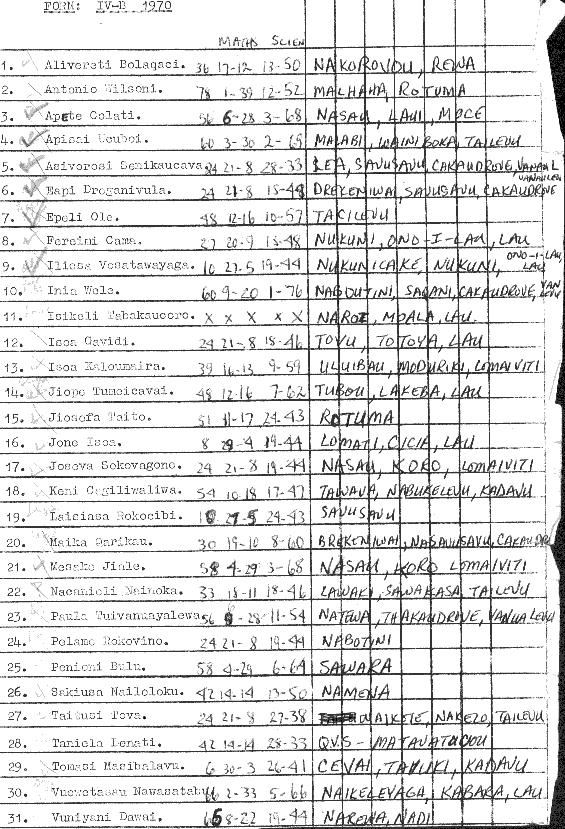 FORM: IV-B 1970
MATHS SCIEN
1. Alivereti Bolaqaci. 36 17-12 13-50 NAKOROVOU, REWA
2. Antonio Wilsoni. 78 1-39 12-52 MALHAHA, ROTUMA
3. Apete Colati. 56 6-28 3-68 NASAU, LAUI, MOCE
4. Apisai 60 3-30 2- MALABI, WAINIBOKA, TAILEVU
5. Asivorosi Senikaucava. 24 21-8 28-33 LEA, SAVUSAVU, CAKAUDROVE,
6. Eapi Droganivula. 24 21-8 18-48 DREKENIWAI, SAVUSAVU, CAKAUDROVE
7. Epeli Ole. 48 12-16 10-57 TACILEVU
8. Fereimi Cama. 27 20-9 18-48 NUKUNI, ONO-I-LAU, LAU
9. Iliesa Vosatawayaga. 10 27-5 19-44 NUKUNICAKE, NUKUNI, ONO-I-LAU, LAU
10. Inia Wele. 60 9-20 1-76 NABOUTINI, SAQANI, CAKAUDROVE,
11. Isikeli Tabakaucoro. X X X X X NAROI, MOALA, LAU
12. Isoa Gavidi. 24 21-8 18-46 TOVU, TOTOYA, LAU
13. Isoa Kaloumaira. 39 16-13 9-59 ULUIBAU, MODURIKI, LOMAIVITI
14. Jiope Tumeicavai. 48 12-16 7-62 TUBOU, LAKEBA, LAU
15. Jiosefa Taito. 51 11-17 24-43 ROTUMA
16. Jone Isoa. 8 29-4 19-44 LOMATI, CICIA, LAU
17. Joseva Sokovagone. 24 21-8 19-44 NASAU, KORO, LOMAIVITI
18. Keni Cagiliwaliwa. 54 10-18 17-47 TAWAVA, NABUKELEVU, KADAVU
19. Laiciasa Rokocibi. 24-43 SAVUSAVU
20. Maika Qarikau. 30 19-10 8-60 BREKENIWAI, NASAVUSAVU,
21. Mesake Jiale. 58 4-29 3-68 NASAU, KORO LOMAIVITI
22. Nacanieli Nainoka. 33 18-11 18-46 LAWAKI, SAWAKASA, TAILEVU
23. Paula Tuivanuayalewa 56 -28 11-54 NATEWA, THAKAUDROVE, VANUA LEVU
24. Pelamo Rokovino. 24 21-8 19-44 NABOTINI
25. Penioni Bulu. 58 4-29 6-64 SAWARA
26. Sakiusa Nailoloku. 42 14-14 13-50 NAMENA
27. Taitusi Tova. 24 21-8 27-38 WAIKETE, NAKELO, TAILEVU
28. Taniela Lenati. 42 14-14 28-33 Q.V.S - MATAVATUCOU
29. Tomasi Masibalavu. 6 30-3 26-41 CEVAI, TAVUKI, KADAVU
30. Vuewetasau 2-33 5-66 NAIKELEYAGA, KABARA, LAU
31. Vuniyani Dawai. 8-22 19-44 NAREWA, NADI